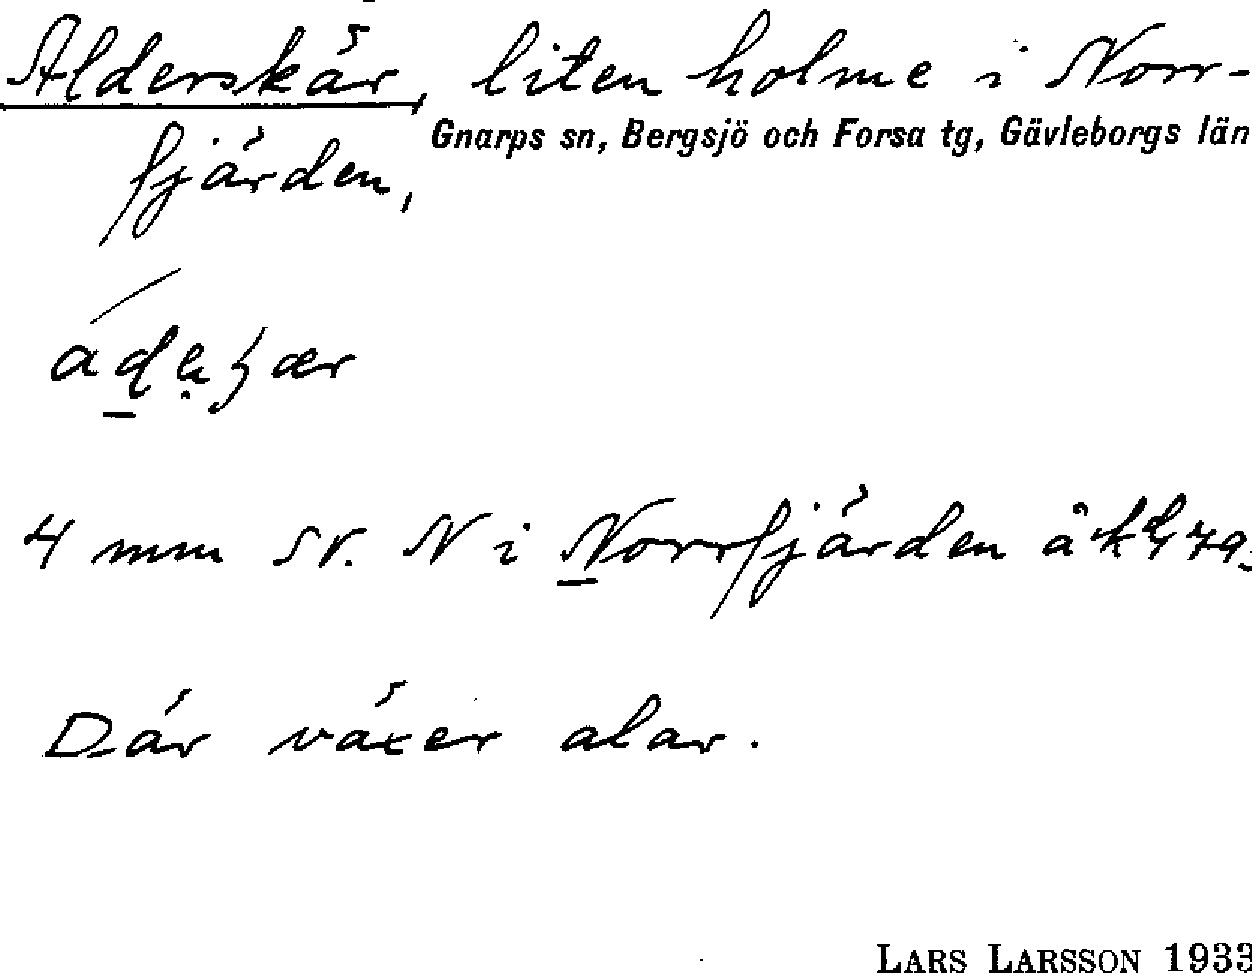 Alderskär, liten holme i Norr-
Gnarps sn, Bergsjö och Forsa tg, Gävleborgs län
fjärden,
4 mm sv. N i Norrfjärden å
Där växer alar.
LARS LARSSON 1933